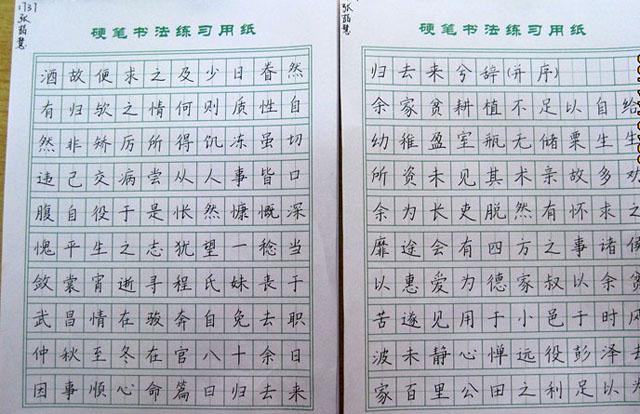 张慧
硬笔书法练习用纸
酒故便求之及少日眷然
有归欤之情何则质性自
然非矫厉所得饥冻虽切
违己交病尝从人事皆口
腹自役于是怅然慷慨深
愧平生之志犹望一稔当
敛裳宵逝寻程氏妹丧于
武昌情在骏奔自免去职
仲秋至冬在官八十余日
因事顺心命篇曰归去来
张慧
硬笔书法练习用纸
归去来兮辞(并序)
余家贫耕植不足以自给
幼稚盈室瓶无储粟生生
所资未见其术亲故多劝
余为长吏脱然有怀求之
靡途会有四方之事诸侯
以惠爱为德家叔以余贫
苦遂见用于小邑于时风
波未静心惮远役彭泽去
家百里公田之利足以为